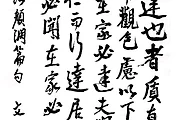 達也者質直
觀色慮以下
在家必達夫
仁而行違居
必聞在家必
顏淵篇句 文